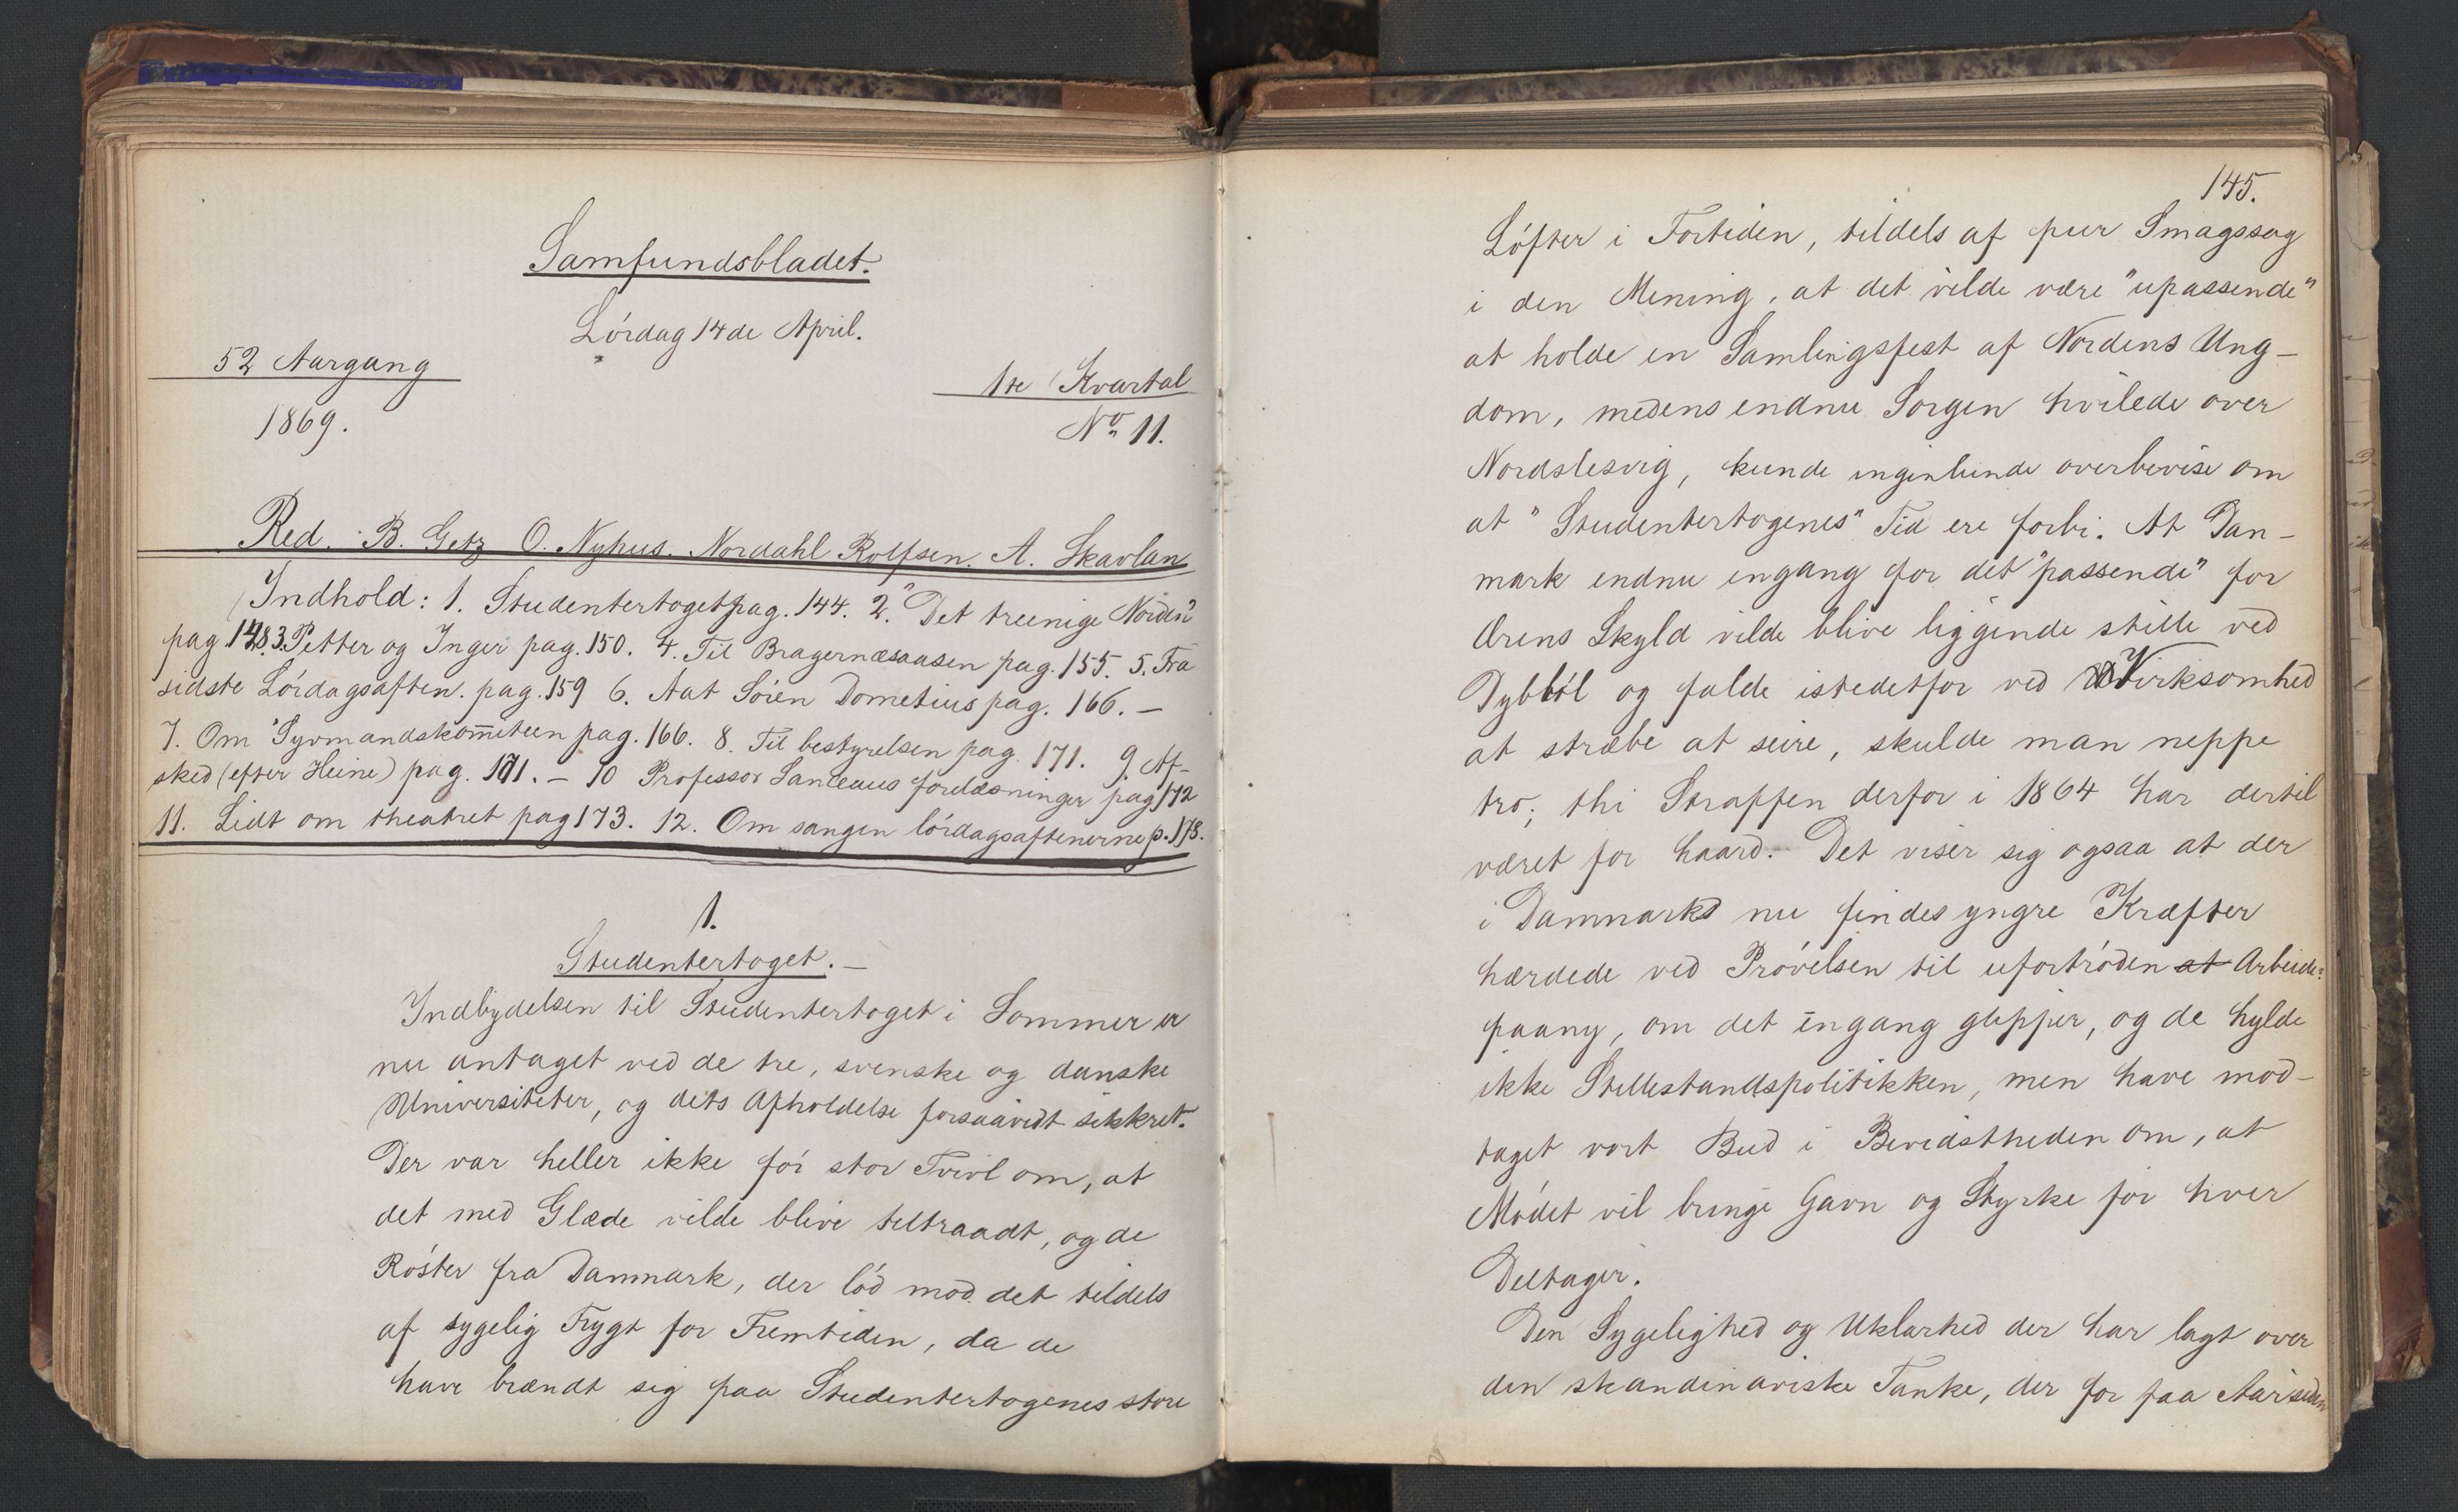 Samfundsbladet.
Lórdag 14de April.
52 Aargang
1869.
1te Kvartal
No 11.
Red. B. Getz O. Nyhus. Nordahl Rolfsen. A. Skavlan
Indhold: 1. Studentertoget pag. 144. 2. "Det treenige Norden"
pag 148. 3. Petter og Inger pag. 150. 4. Til Bragernæsaasen pag. 155. 5. Fra
sidste Lórdagsaften. pag. 159 6. Aat Sóren Dometius pag. 166. —
7. Om Syvmandskomiteen pag. 166. 8. Til bestyrelsen pag. 171. 9. Af-
sked (efter Heine) pag. 171. — 10 Professor forelæsninger pag 172
11. Lidt om theatret pag 173. 12. Om sangen lórdagsaftenerne p. 178.
1.
Studentertoget. —
Indbydelsen til Studentertoget i Sommer er
nu antaget ved de tre, svenske og danske
Universiteter, og dets Afholdelse forsaavidt sikkret.
Der var heller ikke fór stor Tvivl om, at
det med Glæde vilde blive tiltraadt, og de
Róster fra Danmark, der lód mod det tildels
af sygelig Frygt for Fremtiden, da de
have brændt sig paa Studentertogenes store
145.
Lófter i Fortiden, tildels af pur Smagssag
i den Mening, at det vilde være "upassende"
at holde en Samlingsfest af Nordens Ung-
dom, medens endnu Sorgen hvilede over
Nordslesvig, kunde ingenlunde overbevise om
at "Studentertogenes" Tid ere forbi. At Dan-
mark endnu engang for det "passende" for
Ærens Skyld vilde blive liggende stille ved
Dybból og falde istedetfor ved Virksomhed
at stræbe at seire, skulde man neppe
tro; thi Straffen derfor i 1864 har dertil
været for haard. Det viser sig ogsaa at der
i Danmark nu findes yngre Kræfter
hærdede ved Próvelsen til ufortróden at Arbeide
paany, om det engang glipper, og de hylde
ikke Stillestandspolitikken, men have mod-
taget vort Bud i Bevidstheden om, at
Módet vil bringe Gavn og Styrke for hver
Deltager.
Den Sygelighed og Uklarhed der har lagt over
den skandinaviske Tanke, der for faa Aar siden